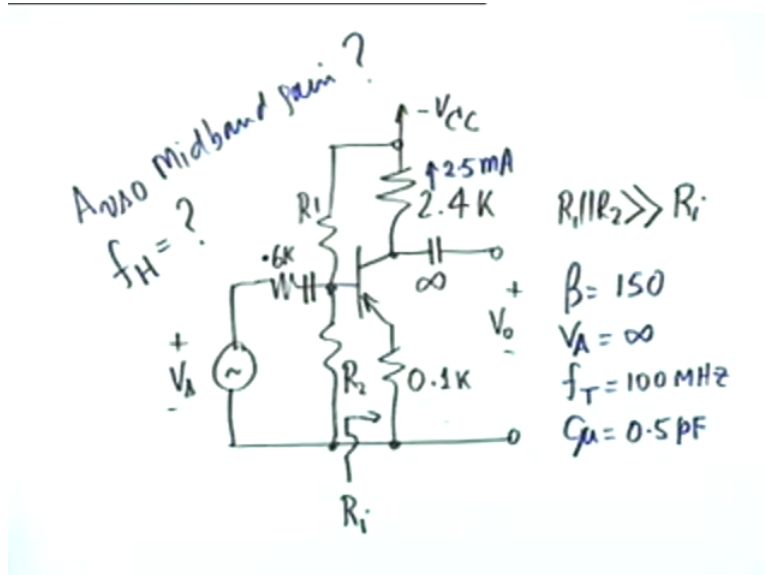 A_vso midband gain?
f_H = ?
-V_CC
↑2.5 mA
2.4 K
R1
.6K
∞
+
V_o
-
+
V_s
-
R_2
0.1K
R_i
R_1||R_2 >> R_i
β = 150
V_A = ∞
f_T = 100 MHz
C_μ = 0.5 pF